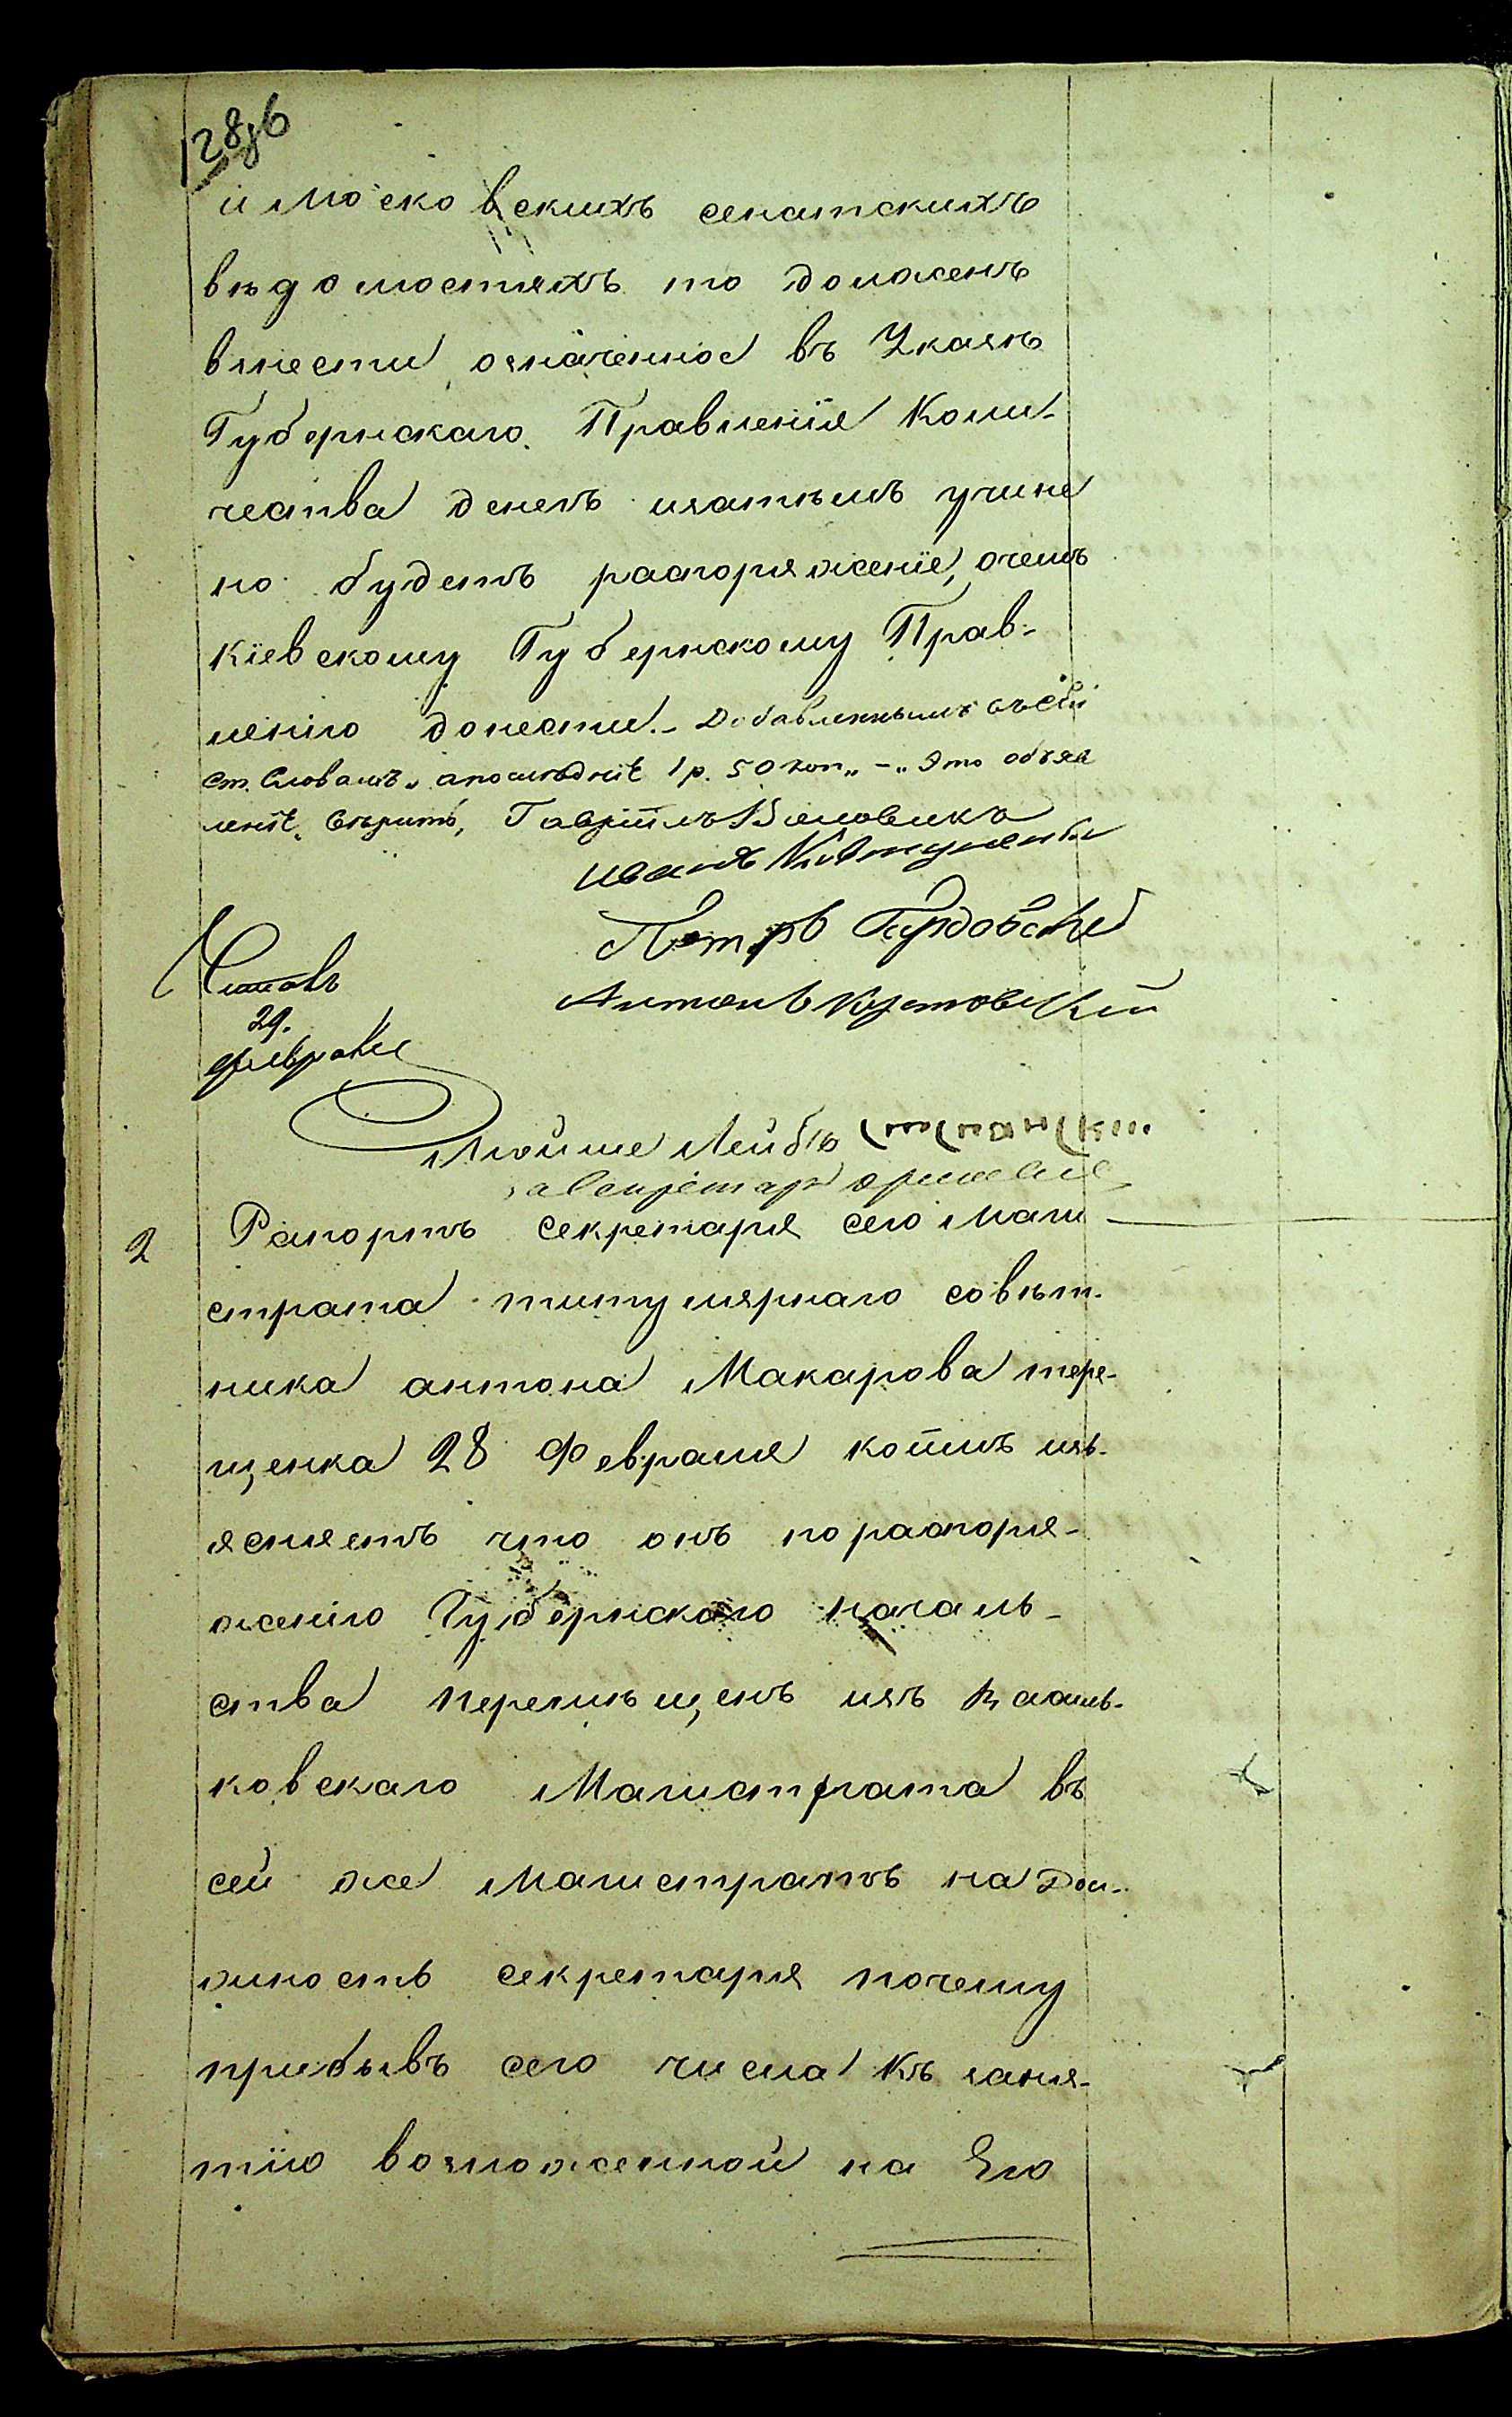 и Московскихъ сенатскихъ
вѣдомостяхъ то долженъ
внести означенное въ Указѣ
Губернскаго Правленія Коли-
чества денегъ изатѣмъ учине
но будетъ распоряженіе, очемъ
Кіевскому Губернскому Прав-
ленію донести. Добавленнымъ
Словамъ „апослѣдніе 1 р. 50 коп„ - „Это объяв
леніе„ вѣрить,
Иванъ
Петръ
Антонъ
Читалъ
29.
февраля
Мойше Лейбъ
2 Рапортъ секретаря сего Маги-
страта титулярнаго совѣт-
ника антона Макарова тере-
щенка 28 Февраля коимъ изъ-
ясняетъ что онъ пораспоря-
женію Губернскаго началь-
ства перемѣщенъ изъ Василь-
ковскаго Магистрата въ
сей же Магистратъ на Дол-
жность секретаря почему
прибывъ сего числа Къ заня-
тію возложенной на Его